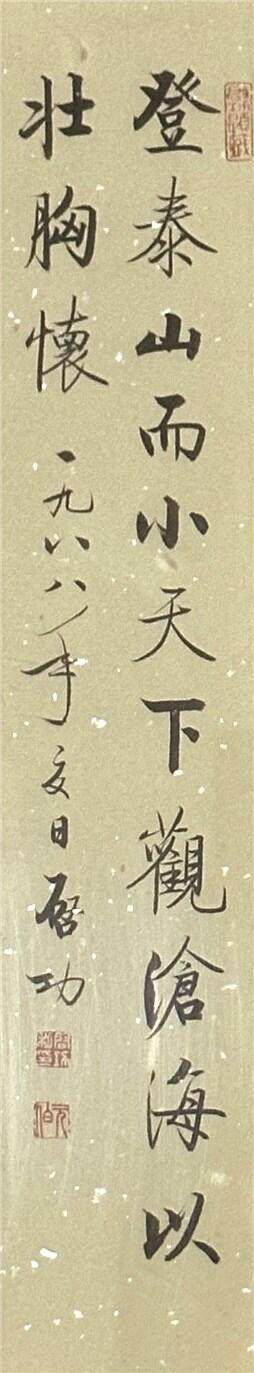 登泰山而小天下觀滄海以
壯胸懷 一九八八年夏日啓功